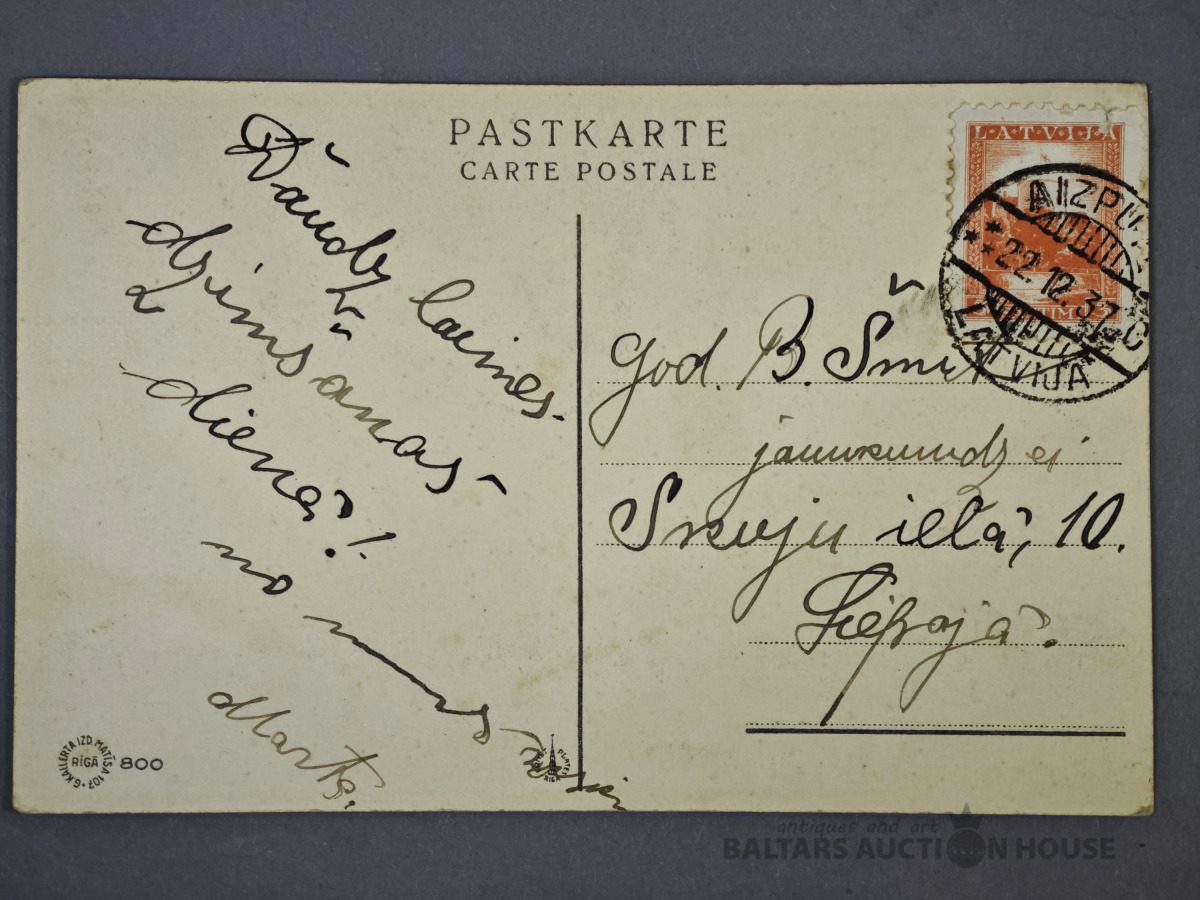 PASTKARTE
CARTE POSTALE
Daudz laimes
dzimšanas
dienā!
no mums
Marta.
LATVIJA
AIZPU
22.12.37
LATVIJA
God. B.
jaunkundzei
ielā, 10.
Liepājā.
G. KALLERTA IZD. MATĪSA 107
RĪGĀ
800
antiques and art
BALTARS AUCTION HOUSE